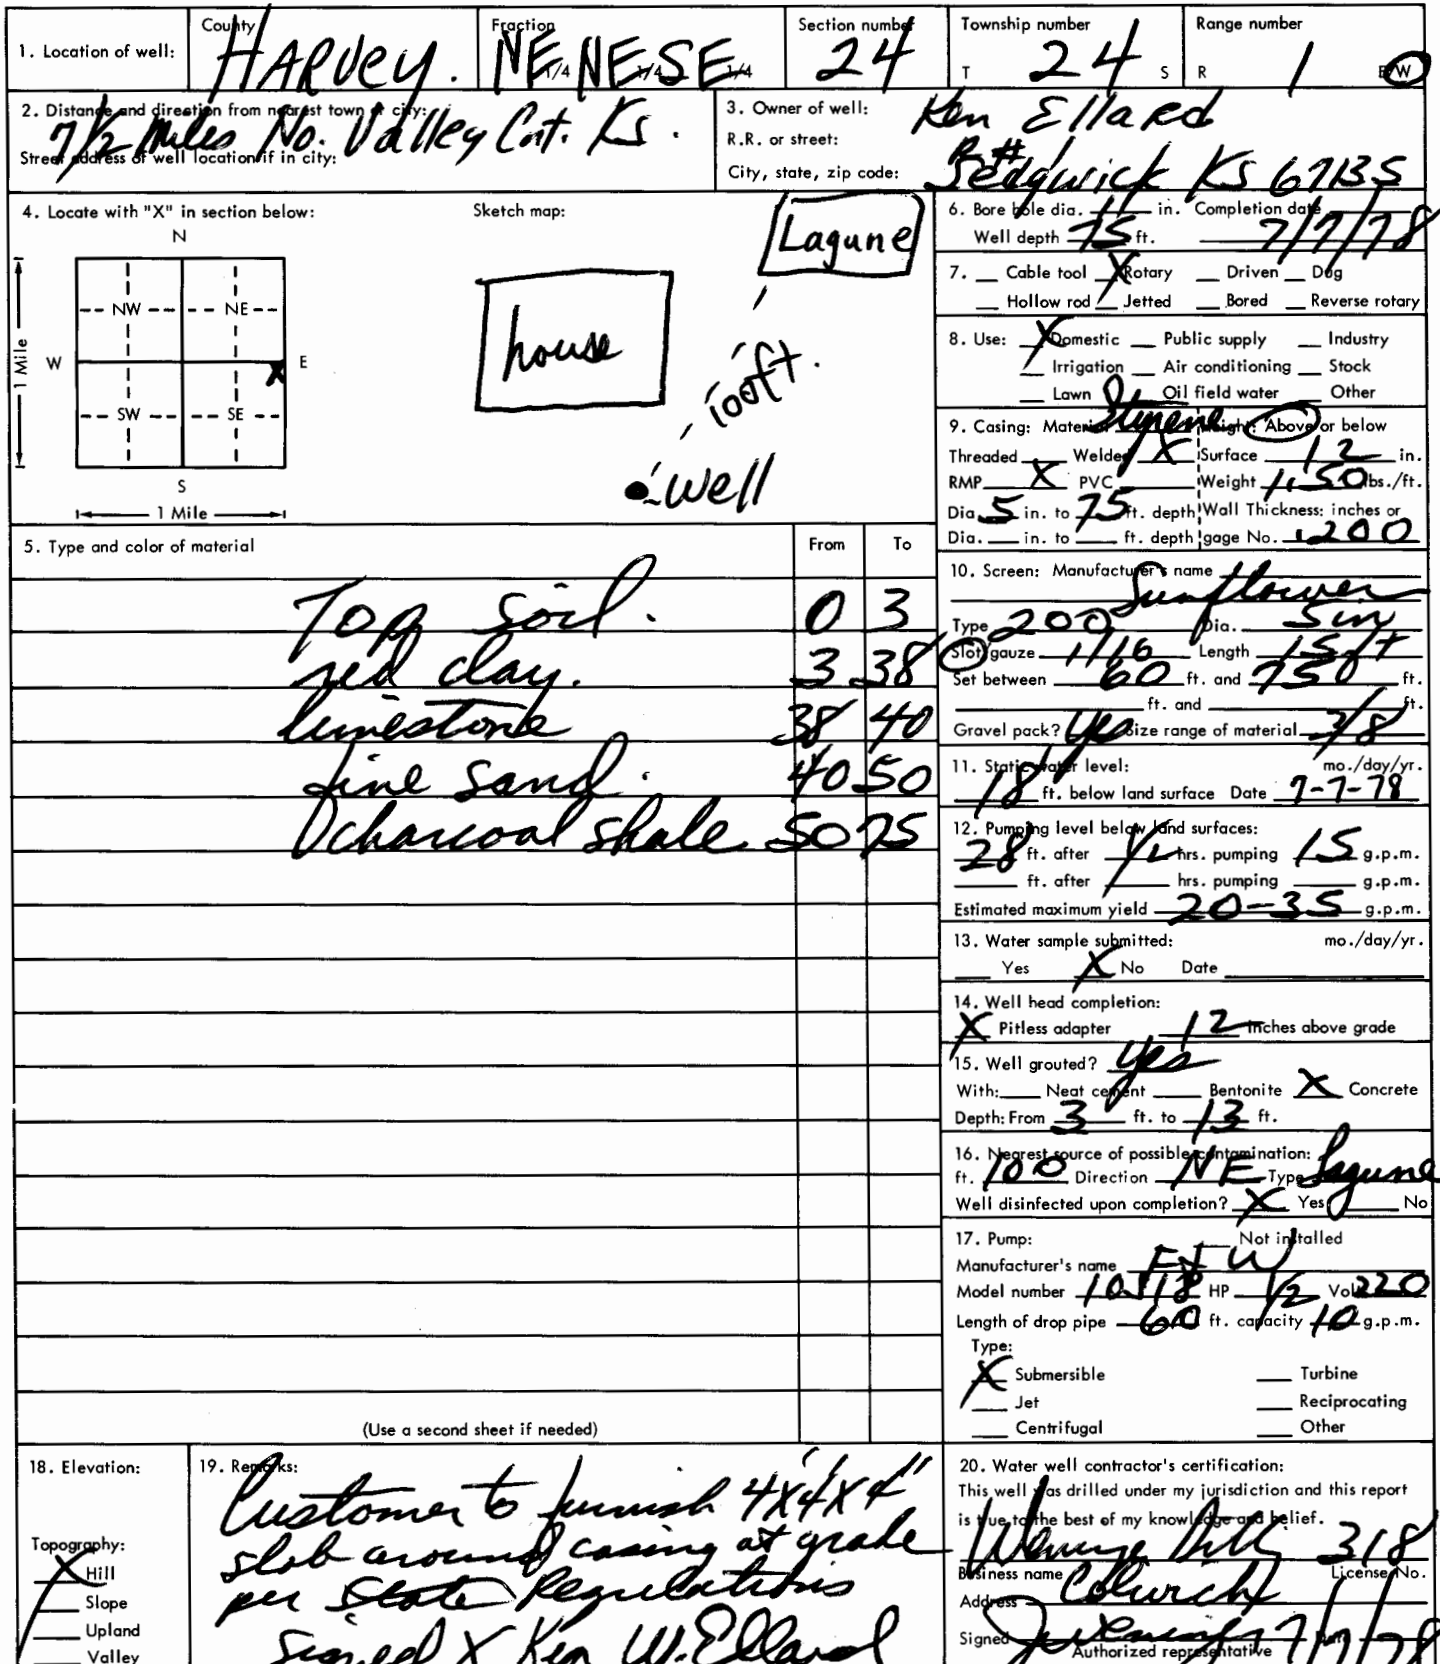 1. Location of well: County HARVEY. Fraction NE 1/4 NE 1/4 SE 1/4 Section number 24 Township number T 24 S Range number R 1 E/W
2. Distance and direction from nearest town or city: 7 1/2 Miles No. Valley Cnt. Ks.
Street address of well location if in city:
3. Owner of well: Ken Ellard
R.R. or street: R# 1
City, state, zip code: Sedgwick Ks 67135
4. Locate with "X" in section below:
N
NW NE
W X E
SW SE
S
1 Mile
1 Mile
Sketch map:
Lagune
house
100ft.
well
5. Type and color of material From To
Top soil. 0 3
red clay. 3 38
limestone 38 40
fine sand. 40 50
charcoal shale 50 75
(Use a second sheet if needed)
6. Bore hole dia. 11 in. Completion date
Well depth 75 ft. 7/7/78
7. Cable tool X Rotary Driven Dug
Hollow rod Jetted Bored Reverse rotary
8. Use: X Domestic Public supply Industry
Irrigation Air conditioning Stock
Lawn Oil field water Other
9. Casing: Material Styrene Height: Above or below
Threaded Welded X Surface 12 in.
RMP X PVC Weight 1.50 lbs./ft.
Dia. 5 in. to 75 ft. depth Wall Thickness: inches or
Dia. in. to ft. depth gage No. .200
10. Screen: Manufacturer's name
Sunflower
Type 200 Dia. 5in
Slot/gauze 1/16 Length 15ft
Set between 60 ft. and 750 ft.
ft. and ft.
Gravel pack? Yes Size range of material 3/8
11. Static water level: mo./day/yr.
18 ft. below land surface Date 7-7-78
12. Pumping level below land surfaces:
28 ft. after 1/2 hrs. pumping 15 g.p.m.
ft. after hrs. pumping g.p.m.
Estimated maximum yield 20-35 g.p.m.
13. Water sample submitted: mo./day/yr.
Yes X No Date
14. Well head completion:
X Pitless adapter 12 inches above grade
15. Well grouted? yes
With: Neat cement Bentonite X Concrete
Depth: From 3 ft. to 13 ft.
16. Nearest source of possible contamination:
ft. 100 Direction NE Type Lagune
Well disinfected upon completion? X Yes No
17. Pump: Not installed
Manufacturer's name F&W
Model number HP 1/2 Volts 220
Length of drop pipe 60 ft. capacity 10 g.p.m.
Type:
X Submersible Turbine
Jet Reciprocating
Centrifugal Other
18. Elevation:
Topography:
X Hill
Slope
Upland
Valley
19. Remarks:
Customer to furnish 4'x4'x4"
slab around casing at grade
per State Regulations
Signed X Ken W. Ellard
20. Water well contractor's certification:
This well was drilled under my jurisdiction and this report
is true to the best of my knowledge and belief.
318
Business name License No.
Address Colwich
Signed Date 7/7/78
Authorized representative